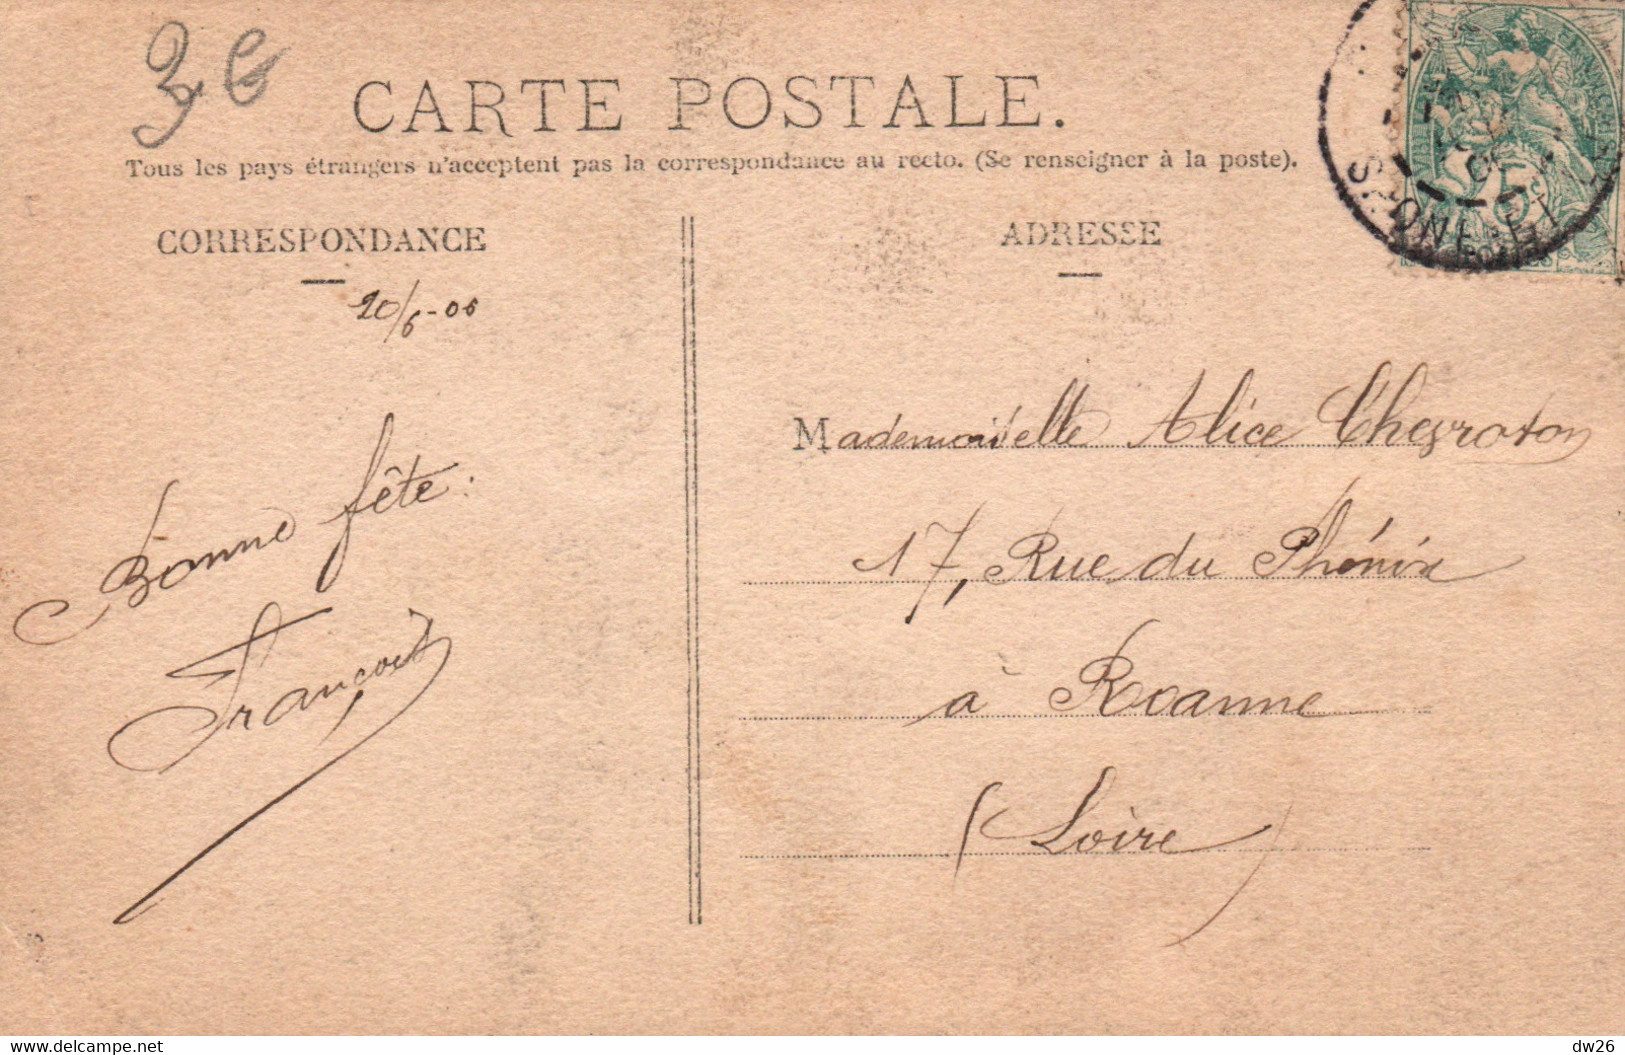 3 €
CARTE POSTALE.
Tous les pays étrangers n'acceptent pas la correspondance au recto. (Se renseigner à la poste).
CORRESPONDANCE
20/6-06
Bonne fête.
François
ADRESSE
Mademoiselle Alice Chevroton
17, Rue du Phénix
à Roanne
(Loire)
SAONE-ET-L
5c
delcampe.net
dw26